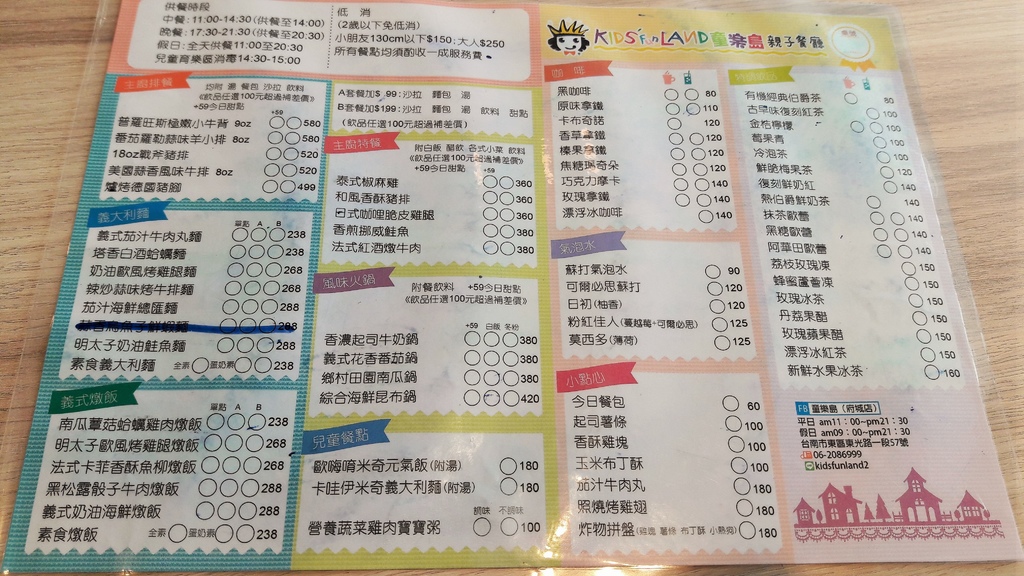 供餐時段
中餐:11:00-14:30(供餐至14:00)
晚餐:17:30-21:30(供餐至20:30)
假日:全天供餐11:00至20:30
兒童育樂區消毒14:30-15:00
低 消
(2歲以下免低消)
小朋友130cm以下$150;大人$250
所有餐點均須酌收一成服務費
KIDS' fun LAND 童樂島 親子餐廳
主廚排餐
均附 湯 餐包 沙拉 飲料
《飲品任選100元超過補差價》
+59今日甜點
+59
普羅旺斯極嫩小牛背 9oz 580
番茄羅勒蒜味羊小排 8oz 580
18oz戰斧豬排 520
美國蒜香風味牛排 8oz 520
爐烤德國豬腳 499
義大利麵
單點 A B
義式茄汁牛肉丸麵 238
塔香白酒蛤蠣麵 238
奶油歐風烤雞腿麵 268
辣炒蒜味烤牛排麵 268
茄汁海鮮總匯麵 288
明太子奶油鮭魚麵 288
素食義大利麵 全素 蛋奶素 238
義式燉飯
單點 A B
南瓜蕈菇蛤蠣雞肉燉飯 238
明太子歐風烤雞腿燉飯 268
法式卡菲香酥魚柳燉飯 268
黑松露骰子牛肉燉飯 288
義式奶油海鮮燉飯 288
素食燉飯 全素 蛋奶素 238
A套餐加$ 99:沙拉 麵包 湯
B套餐加$199:沙拉 麵包 湯 飲料 甜點
(飲品任選100元超過補差價)
主廚特餐
附白飯 醋飲 各式小菜 飲料
《飲品任選100元超過補差價》
+59今日甜點
+59
泰式椒麻雞 360
和風香酥豬排 360
日式咖哩脆皮雞腿 360
香煎挪威鮭魚 380
法式紅酒燉牛肉 380
風味火鍋
附餐飲料 +59今日甜點
《飲品任選100元超過補差價》
+59 白飯 冬粉
香濃起司牛奶鍋 380
義式花香番茄鍋 380
鄉村田園南瓜鍋 380
綜合海鮮昆布鍋 420
兒童餐點
歐嗨唷米奇元氣飯(附湯) 180
卡哇伊米奇義大利麵(附湯) 180
調味 不調味
營養蔬菜雞肉寶寶粥 100
咖 啡
黑咖啡 80
原味拿鐵 110
卡布奇諾 120
香草拿鐵 120
榛果拿鐵 120
焦糖瑪奇朵 120
巧克力摩卡 120
玫瑰拿鐵 140
漂浮冰咖啡 140
氣泡水
蘇打氣泡水 90
可爾必思蘇打 120
日初(柚香) 120
粉紅佳人(蔓越莓+可爾必思) 125
莫西多(薄荷) 125
小點心
今日餐包 60
起司薯條 100
香酥雞塊 100
玉米布丁酥 100
茄汁牛肉丸 180
照燒烤雞翅 180
炸物拼盤 180
有機經典伯爵茶 80
古早味復刻紅茶 80
金桔檸檬 100
莓果青 100
冷泡茶 100
鮮脆梅果茶 120
復刻鮮奶紅 120
熱伯爵鮮奶茶 140
抹茶歐蕾 140
黑糖歐蕾 140
阿華田歐蕾 140
荔枝玫瑰凍 150
蜂蜜蘆薈凍 150
玫瑰冰茶 150
丹荔果醋 150
玫瑰蘋果醋 150
漂浮冰紅茶 150
新鮮水果冰茶 160
FB 童樂島(府城店)
平日 am11:00~pm21:30
假日 am09:00~pm21:30
台南市東區東光路一段57號
06-2086999
kidsfunland2